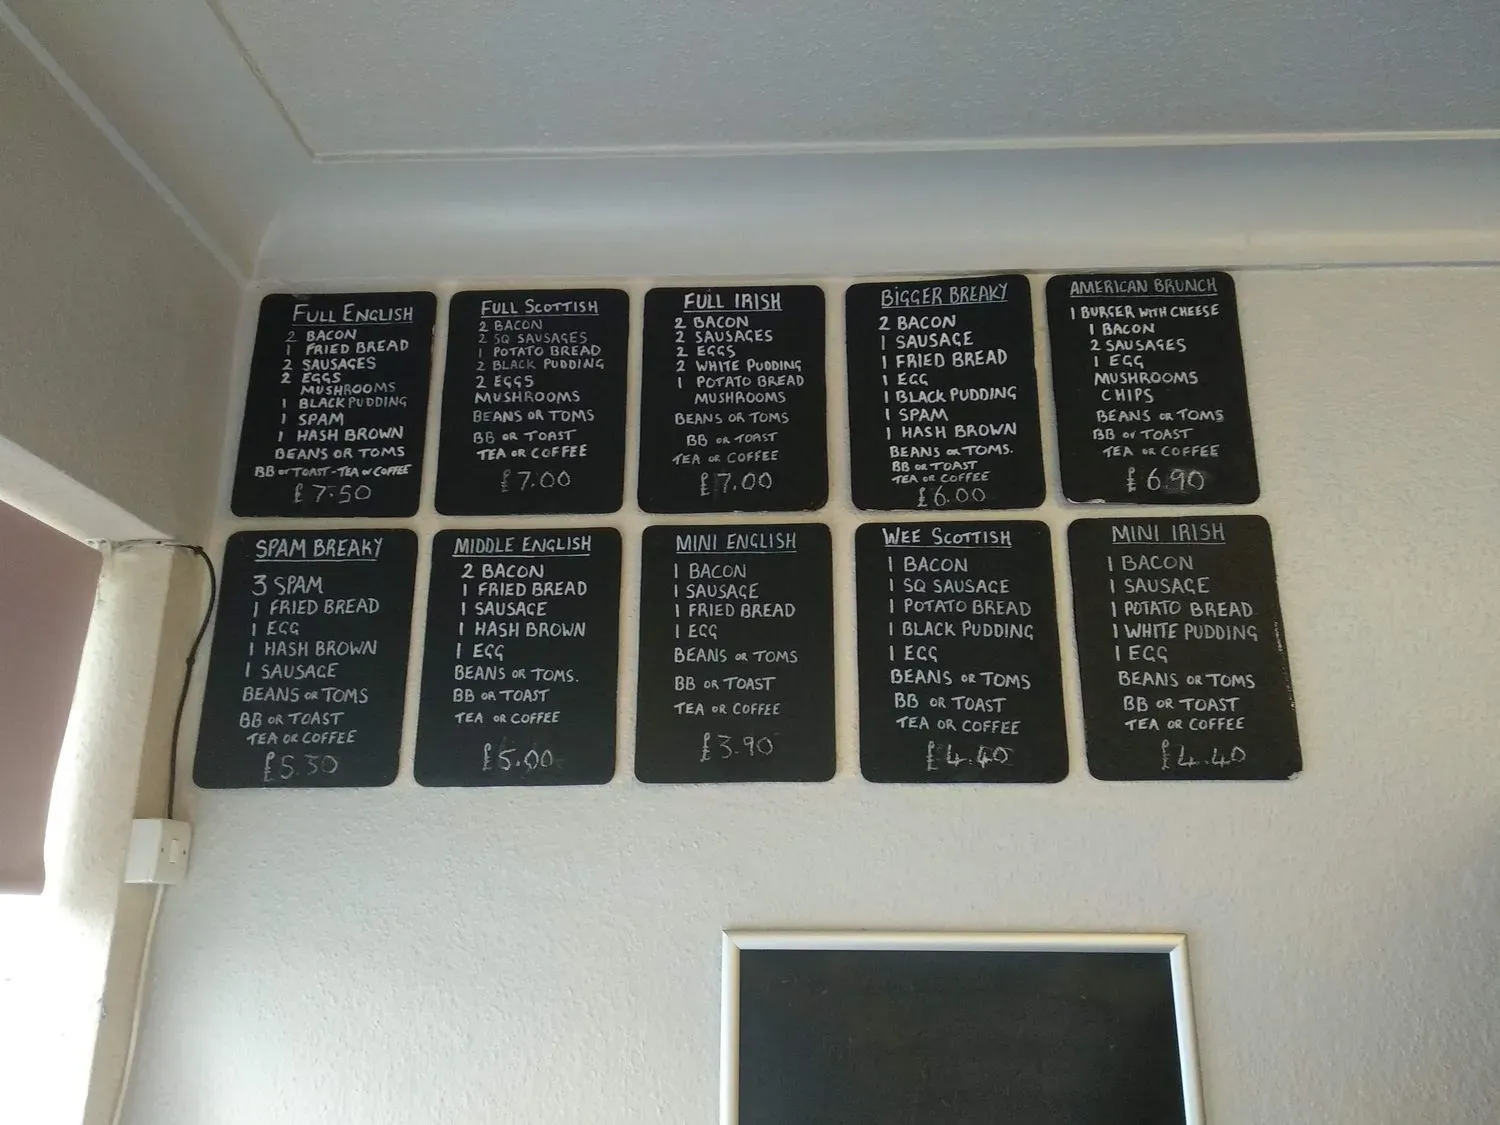 FULL ENGLISH
2 BACON
1 FRIED BREAD
2 SAUSAGES
2 EGGS
MUSHROOMS
1 BLACK PUDDING
1 SPAM
1 HASH BROWN
BEANS OR TOMS
BB OR TOAST - TEA OR COFFEE
£7.50
FULL SCOTTISH
2 BACON
2 SQ SAUSAGES
1 POTATO BREAD
2 BLACK PUDDING
2 EGGS
MUSHROOMS
BEANS OR TOMS
BB OR TOAST
TEA OR COFFEE
£7.00
FULL IRISH
2 BACON
2 SAUSAGES
2 EGGS
2 WHITE PUDDING
1 POTATO BREAD
MUSHROOMS
BEANS OR TOMS
BB OR TOAST
TEA OR COFFEE
£7.00
BIGGER BREAKY
2 BACON
1 SAUSAGE
1 FRIED BREAD
1 EGG
1 BLACK PUDDING
1 SPAM
1 HASH BROWN
BEANS OR TOMS.
BB OR TOAST
TEA OR COFFEE
£6.00
AMERICAN BRUNCH
1 BURGER WITH CHEESE
1 BACON
2 SAUSAGES
1 EGG
MUSHROOMS
CHIPS
BEANS OR TOMS
BB OR TOAST
TEA OR COFFEE
£6.90
SPAM BREAKY
3 SPAM
1 FRIED BREAD
1 EGG
1 HASH BROWN
1 SAUSAGE
BEANS OR TOMS
BB OR TOAST
TEA OR COFFEE
£5.30
MIDDLE ENGLISH
2 BACON
1 FRIED BREAD
1 SAUSAGE
1 HASH BROWN
1 EGG
BEANS OR TOMS.
BB OR TOAST
TEA OR COFFEE
£5.00
MINI ENGLISH
1 BACON
1 SAUSAGE
1 FRIED BREAD
1 EGG
BEANS OR TOMS
BB OR TOAST
TEA OR COFFEE
£3.90
WEE SCOTTISH
1 BACON
1 SQ SAUSAGE
1 POTATO BREAD
1 BLACK PUDDING
1 EGG
BEANS OR TOMS
BB OR TOAST
TEA OR COFFEE
£4.40
MINI IRISH
1 BACON
1 SAUSAGE
1 POTATO BREAD
1 WHITE PUDDING
1 EGG
BEANS OR TOMS
BB OR TOAST
TEA OR COFFEE
£4.40